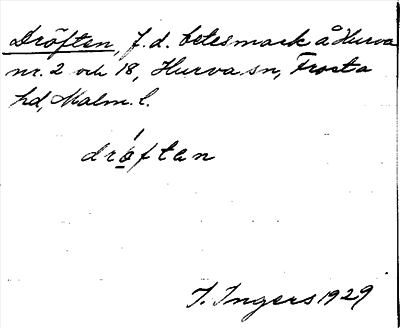 Dröften, f.d. betesmark å Hurva
nr. 2 och 18, Hurva sn, Frosta
hd, Malm. l.
drǫ́ftən
I. Ingers 1929